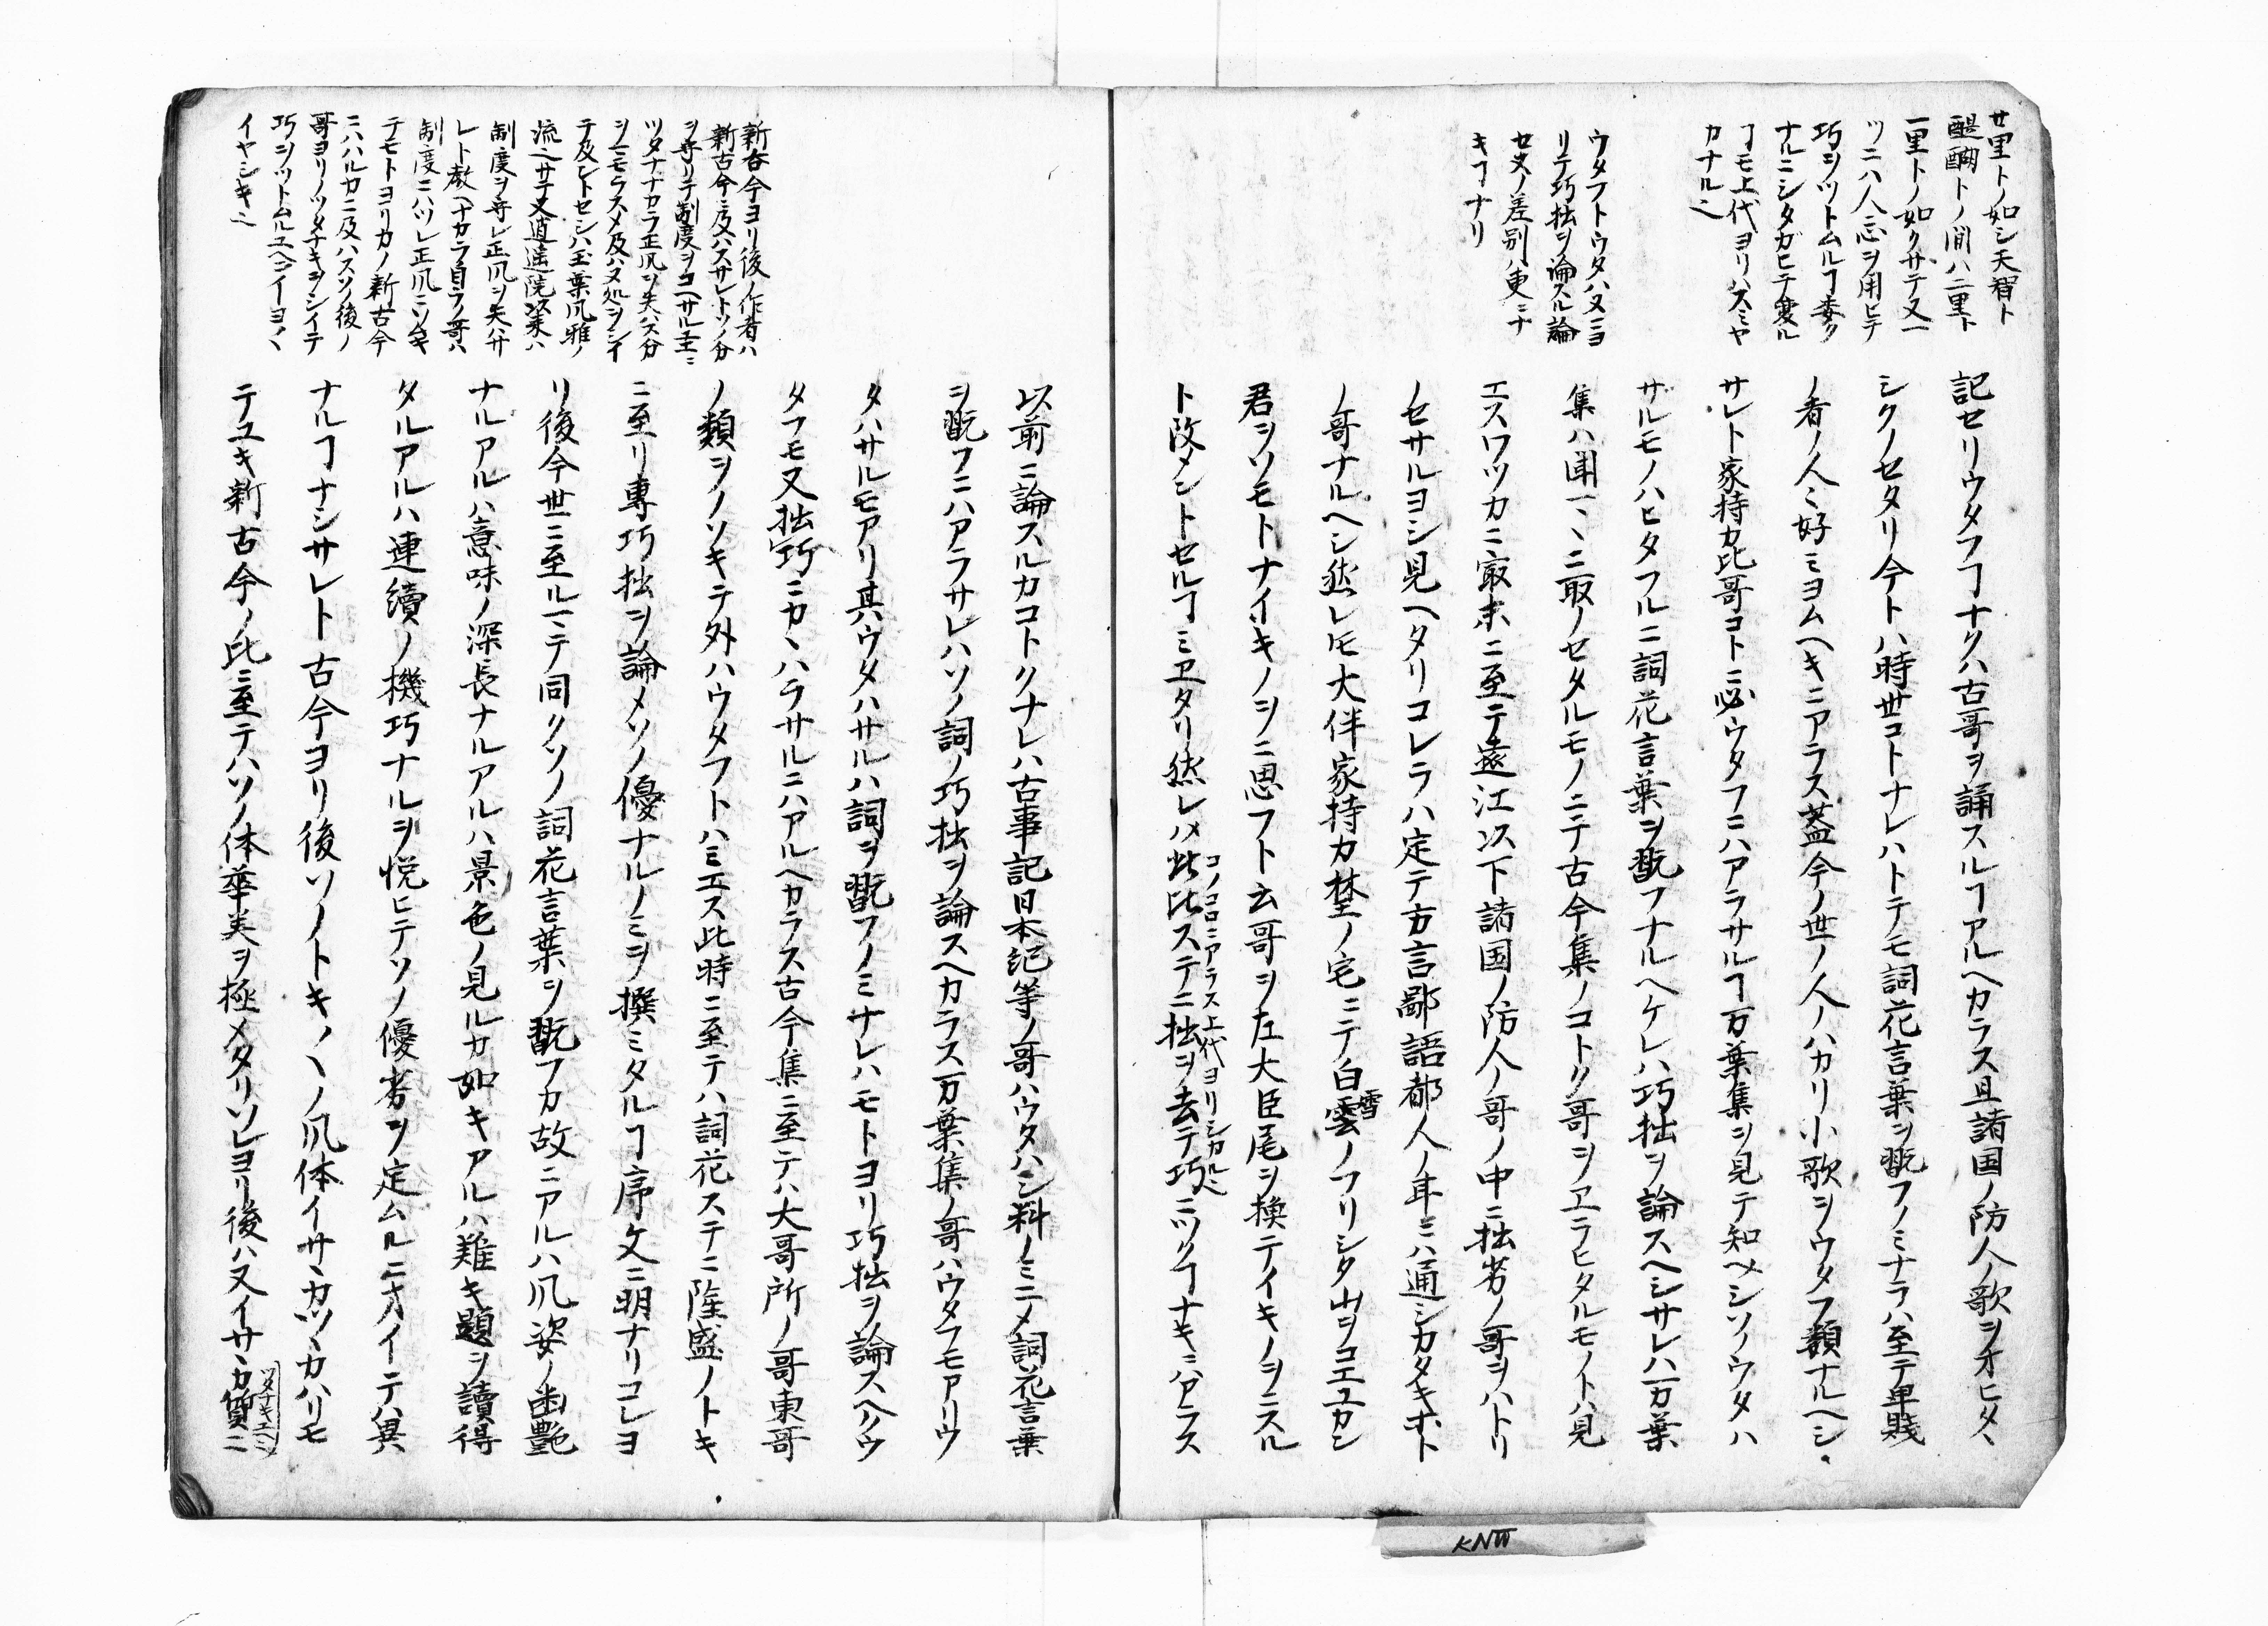 廿里トノ如シ天智ト
醍醐トノ間ハ二里ト
一里トノ如クサテ又一
ツニハ人心ヲ用ヒテ
巧ヲツトムルヿ委ク
ナルニシタガヒテ変ル
ヿモ上代ヨリハスミヤ
カナル也
ウタフトウタハヌニヨ
リテ巧拙ヲ論スル論
セヌノ差別ハ更ニナ
キヿナリ
記セリウタフヿナクハ古哥ヲ誦スルヿアルヘカラス且諸国ノ防人ノ歌ヲオヒタヽ
シクノセタリ今トハ時世コトナレハトテモ詞花言葉ヲ翫フノミナラハ至テ卑賤
ノ者ノ人ミ好ミヨムヘキニアラス蓋今ノ世ノ人ノハカリ小歌ヲウタフ類ナルヘシ
サレト家持カ比哥コトニ必ウタフニハアラサルヿ万葉集ヲ見テ知ヘシソノウタハ
サルモノハヒタフルニ詞花言葉ヲ翫フナルヘケレハ巧拙ヲ論スヘシサレハ万葉
集ハ聞マヽニ取ノセタルモノニテ古今集ノコトク哥ヲヱラヒタルモノトハ見
エスワツカニ㝡末ニ至テ遠江以下諸国ノ防人ノ哥ノ中ニ拙劣ノ哥ヲハトリ
ノセサルヨシ見ヘタリコレラハ定テ方言鄙語都人ノ耳ニハ通シカタキホト
ノ哥ナルヘシ然レ𪜈大伴家持カ埜ノ宅ニテ白雲ノフリシク山ヲコエユカン
雪
君ヲソモトナイキノヲニ思フト云哥ヲ左大臣尾ヲ換テイキノヲニスル
ト改メントセルヿミヱタリ然レハ此比ステニ拙ヲ去テ巧ニツクヿナキニハアラス
コノコロニアラス上代ヨリシカル也
新古今ヨリ後ノ作者ハ
新古今ニ及ハスサレトソノ分
ヲ守リテ制度ヲコヘサル上ニ
ツタナナカラ正風ヲ失ハス分
シモラスメ及ハヌ処ヲシイ
テ及ントセシハ玉葉風雅ノ
流也サテ又逍遥院以来ハ
制度ヲ守レ正風ヲ失ハサ
レト教ヘナカラ自ラノ哥ハ
制度ニハツレ正風ニソムキ
テモトヨリカノ新古今
ニハハルカニ及ハスソノ後ノ
哥ヨリノツタナキヲシイテ
巧ヲツトムルユヘニイヨヽ
イヤシキ也
以前ニ論スルカコトクナレハ古事記日本紀等ノ哥ハウタハン料ノミニメ詞花言葉
ヲ翫フニハアラサレハソノ詞ノ巧拙ヲ論スヘカラス万葉集ノ哥ハウタフモアリウ
タハサルモアリ其ウタハサルハ詞ヲ翫フノミナレハモトヨリ巧拙ヲ論スヘクウ
タフモ又拙巧ニカヽハラサルニハアルヘカラス古今集ニ至テハ大哥所ノ哥東哥
ノ類ヲノソキテ外ハウタフトハミエス此時ニ至テハ詞花ステニ隆盛ノトキ
ニ至リ専巧拙ヲ論メソノ優ナルノミヲ撰ミタルヿ序文ニ明ナリコレヨ
リ後今世ニ至ルマテ同クソノ詞花言葉ヲ翫フカ故ニアルハ風姿ノ幽艶
ナルアルハ意味ノ深長ナルアルハ景色ノ見ルカ如キアルハ難キ題ヲ讀得
タルアルハ連續ノ機巧ナルヲ悦ヒテソノ優劣ヲ定ムルニオイテハ異
ナルヿナシサレト古今ヨリ後ソノトキノヽノ風体イサヽカツヽカハリモ
テユキ新古今ノ比ニ至テハソノ体華美ヲ極メタリソレヨリ後ハ又イサヽカ質ニ
ツタナキユヘニ
KNW